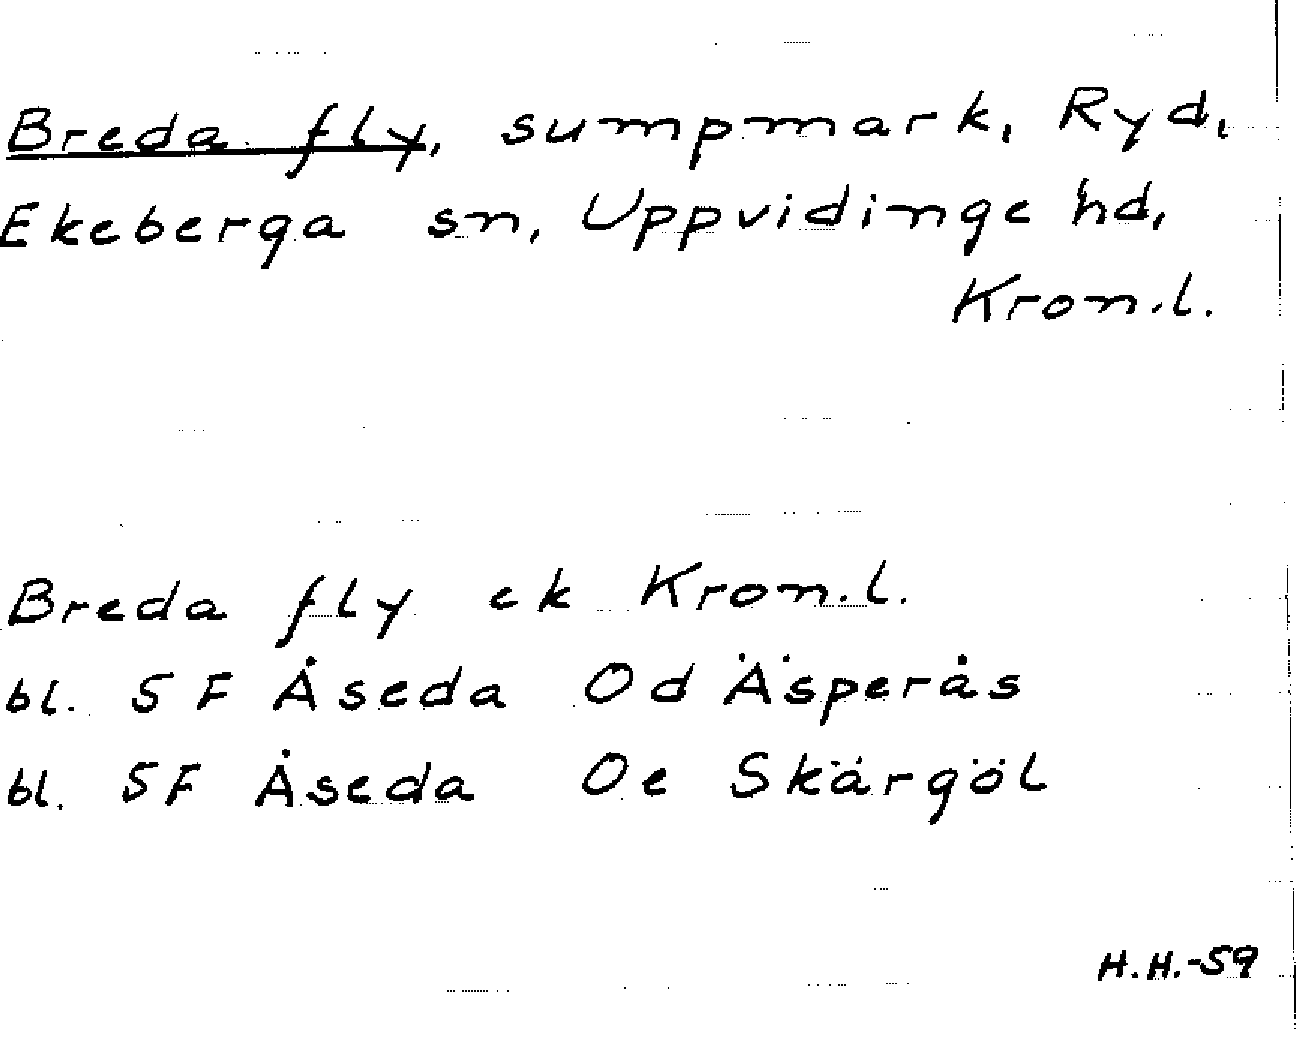 Breda fly, sumpmark, Ryd,
Ekeberga sn, Uppvidinge hd,
Kron.l.
Breda fly ek Kron.l.
bl. 5 F Åseda Od Äsperås
bl. 5F Åseda Oe Skärgöl
H.H.-59